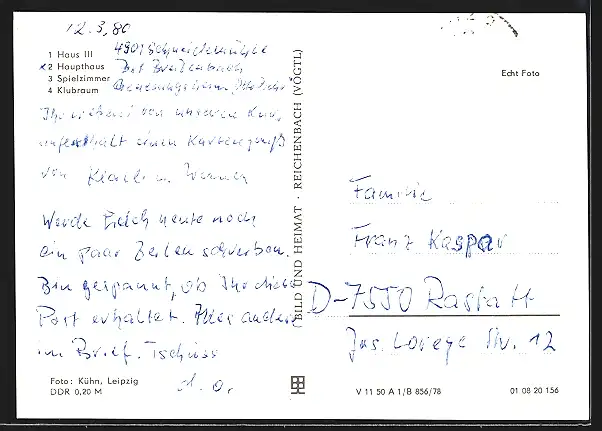 12.3.80
1 Haus III
2 Haupthaus
3 Spielzimmer
4 Klubraum
4901 Schneidemühle
Bad
Ihr
von unseren Kur
aufenthalt einen Kartengruß
von
Werde Euch heute noch
ein paar Zeilen schreiben.
Bin gespannt, ob Ihr diese
Post erhaltet. Alles andere
im Brief. Tschüss
d. O.
Foto: Kühn, Leipzig
DDR 0,20 M
BILD UND HEIMAT · REICHENBACH (VOGTL)
Echt Foto
Familie
Franz Kaspar
D-7550 Rastatt
Jos. Str. 12
V 11 50 A 1/B 856/78
01 08 20 156